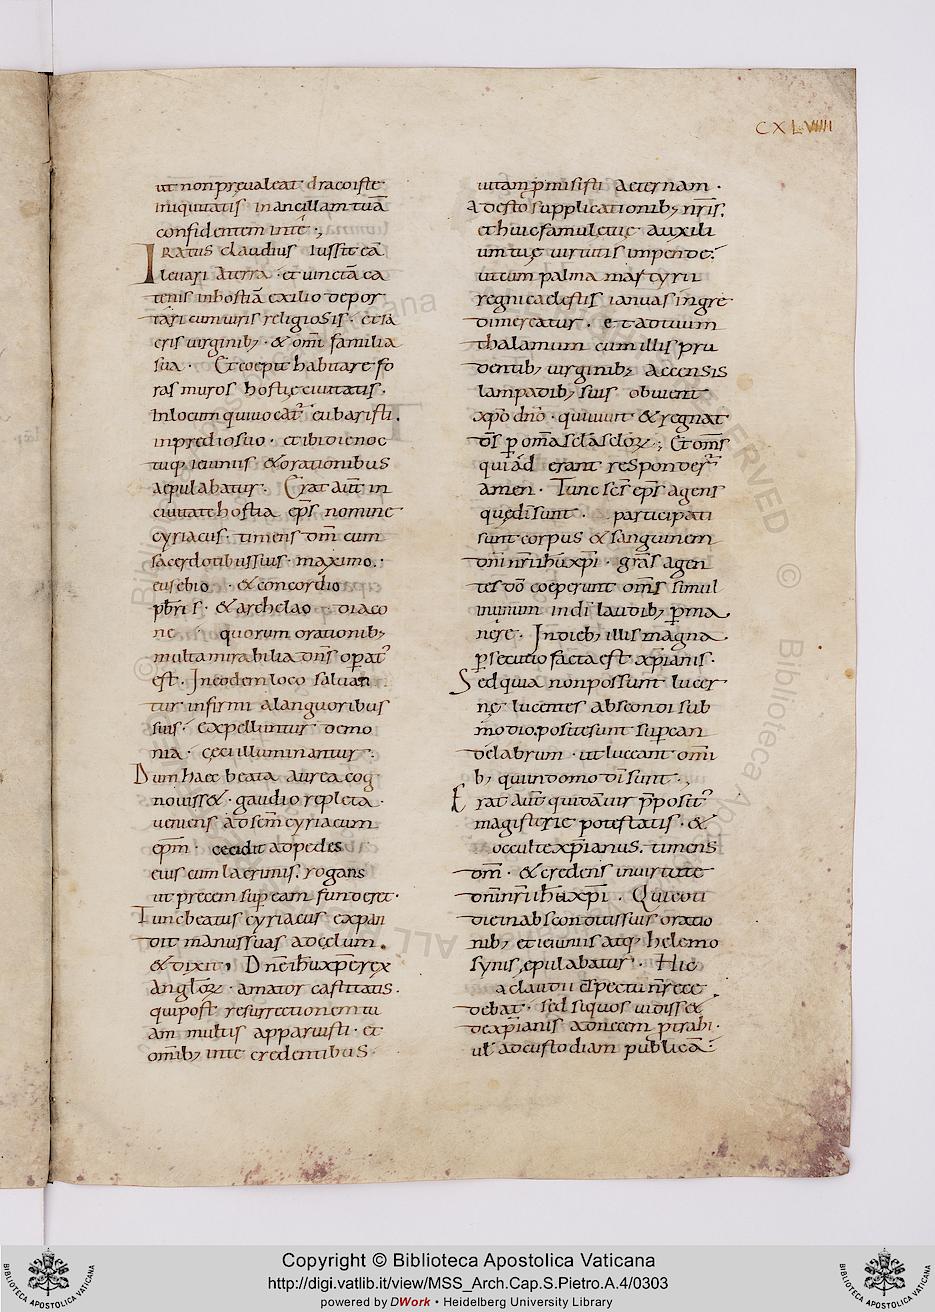 CXLVIIII
ut non prevaleat dracoiste
iniquitatis in ancillam tuā
confidentem inte ·,
IRATUS claudius iussit eā
levari Aterra · et vinctā ca
tenis inhostiā exilio depor
tari cumviris religiosis · et sa
cris virginib; · & om̄i familia
sua · Et coepit habitare fo
ras muros hostię civitatis ·
Inlocum qui vocat᷑ eubaristi ·
inpredio suo · et ibi die noc
tuq; ieiuniis & orationibus
aepulabatur · Erat aut̄ in
civitate hostia ep̄s nomine
cyriacus · timens dm̄ cum
sacerdotibus suis · maximo ·
eusebio · & concordio
pb̄ris · & archelao diaco
ne quorum orationib;
multa mirabilia dn̄s op̱at᷑
est · Ineodem loco salvan
tur infirmi alanguoribus
suis · expelluntur demo
nia · ceci illuminantur ·
Dum haec beata aurea cog
novisse& · gaudio repleta ·
veniens ad sc̄m cyriacum
ep̄m · cecidit ad pedes
eius cum lacrimis · rogans
ut precem sup̱ eam funderet ·
Tunc beatus cyriacus expan
dit manus suas ad cęlum ·
& dixit, Dn̄e ih̄u xp̄e rex
angl̄oꝝ · amator castitatis ·
qui post resurrectionem tu
am multis apparuisti · et
om̄ib; inte credentibus ·
vitam p̱misisti Aeternam ·
Adesto supplicationib; nr̄is ·
et huic famulę tuę Auxili
um tuę virtutis impende ·
ut cum palma martyrii
regni caelestis ianuas ingre
di mereatur · et ad tuum
thalamum cum illis pru
dentib; virginib; Accensis
lampadib; suis obvient
xp̄o dn̄o · qui vivit & regnat
ds̄ p̱ om̄a sc̄la sc̄loꝝ ·, Et om̄s
qui ad erant responder᷑
amen · Tunc sc̄s ep̄s agens
quę dī sunt · participati
sunt corpus & sanguinem
dn̄i nr̄i ih̄u xp̄i · gr̄as agen
tes dō coeperunt om̄s simul
in dī laudib; p̱ma
nere · Indieb; illis magna
p̱secutio facta est xp̄ianis ·
Sed quia non possunt lucer
nę lucentes abscondi sub
modio, posite sunt sup̱ can
delabrum · ut luceant om̄i
b; qui in domo dī sunt ·,
Erat aut̄ quidā vir p̄posit᷑
magisterię potestatis · &
occulte xp̄ianus · timens
dm̄ · & credens in virtute
dn̄i nr̄i ih̄u xp̄i · Qui coti
die in absconditis suis oratio
nib; et ieiuniis atq; helemo
synis, epulabatur · Hic
a claudii c̄spectu n̄ rece
debat · sed si quos vidisse&
de xp̄ianis ad necem p̱trahi ·
ul̄ ad custodiam publicā ·
Copyright © Biblioteca Apostolica Vaticana
http://digi.vatlib.it/view/MSS_Arch.Cap.S.Pietro.A.4/0303
powered by DWork • Heidelberg University Library